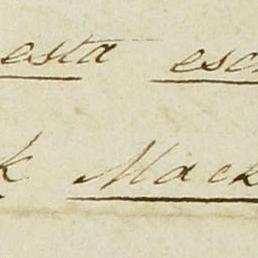 esta esc
k Mack